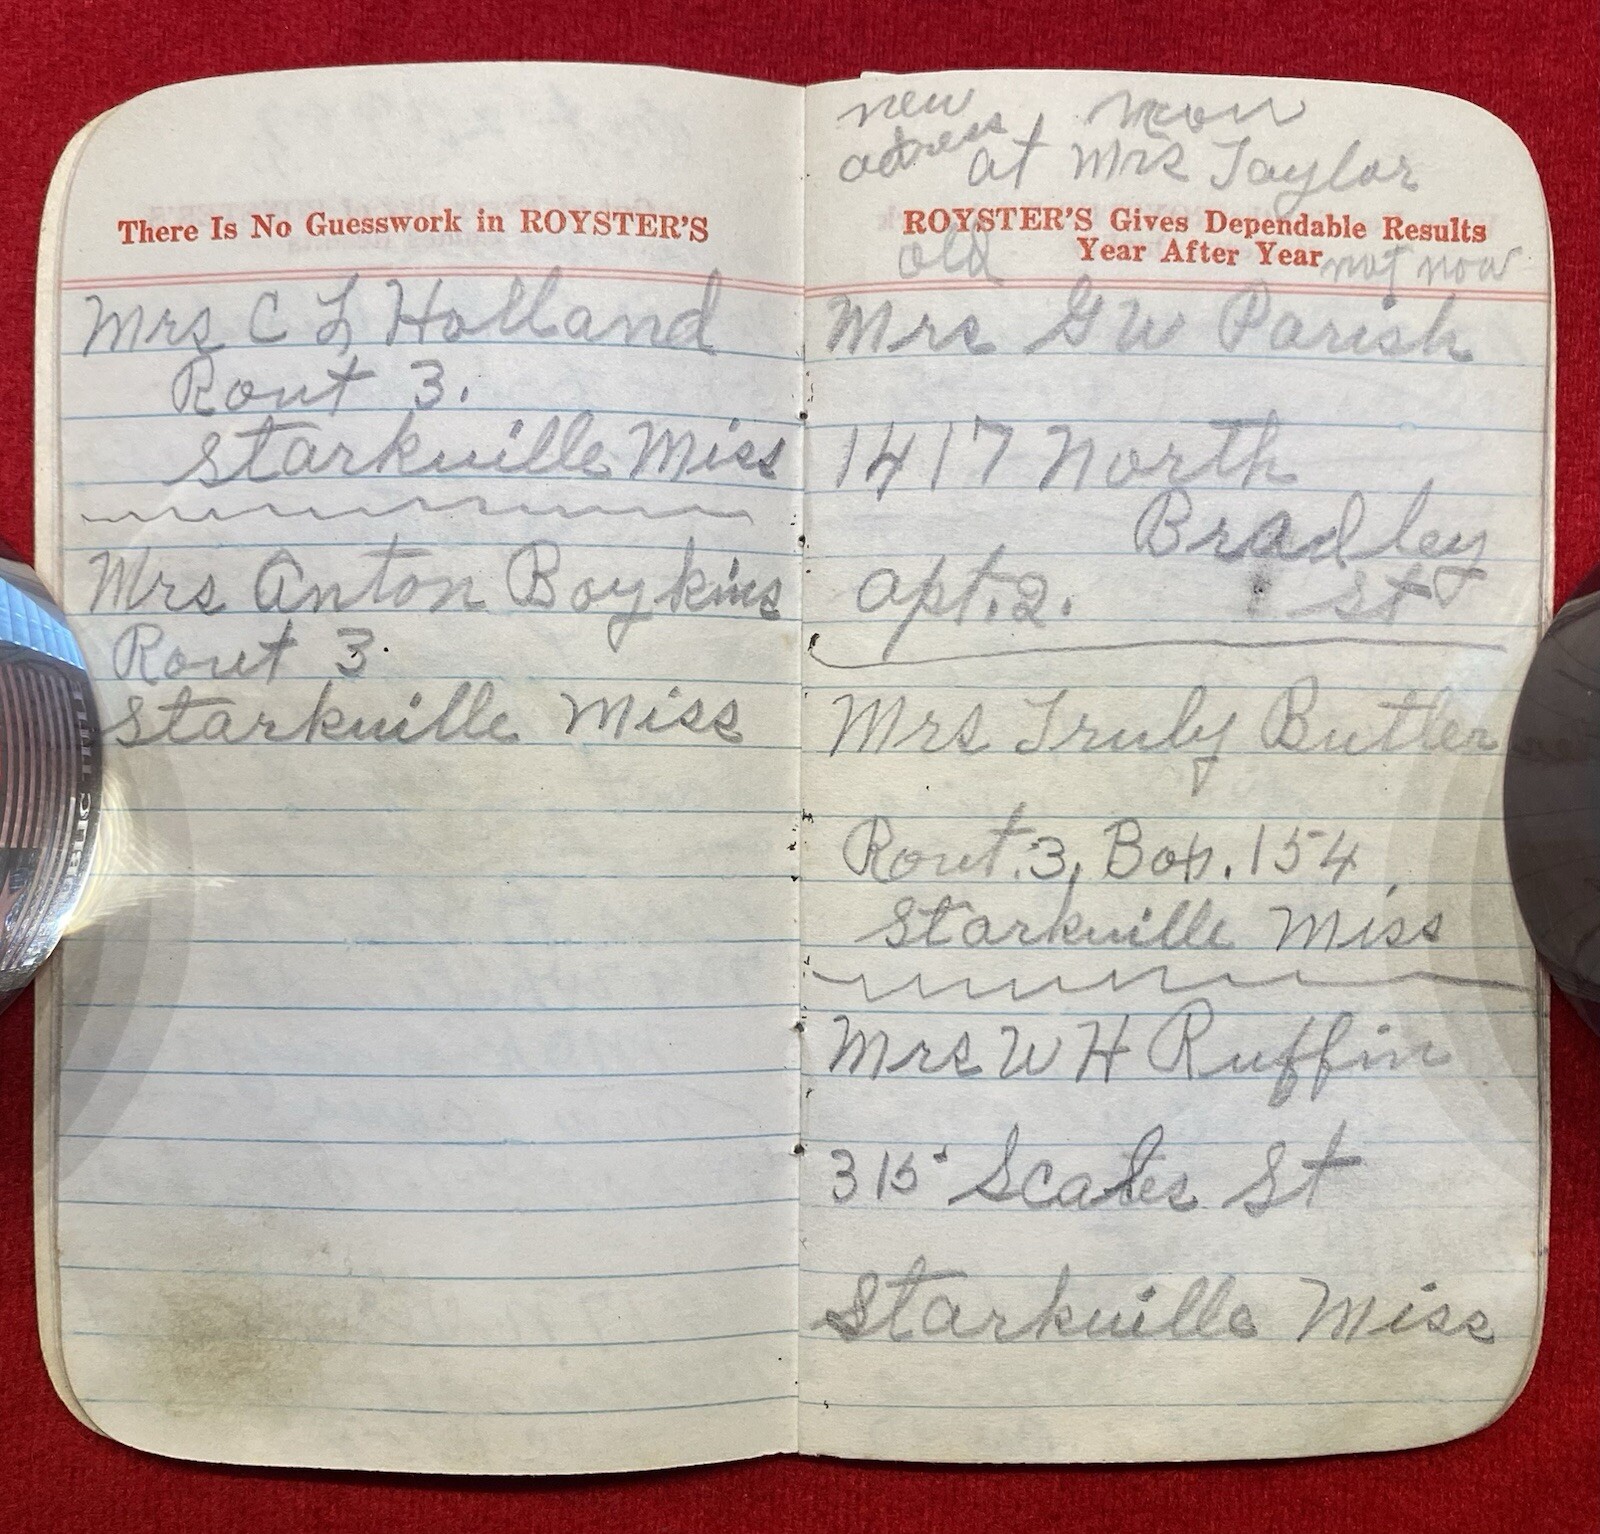 There Is No Guesswork in ROYSTER'S
Mrs C L Holland
Rout 3.
Starkville Miss
Mrs Anton Boykins
Rout 3.
Starkville Miss
new
adress at Mrs Taylor
ROYSTER'S Gives Dependable Results
Year After Year
old not now
Mrs G W Parish
1417 North
Bradley
apt. 2. St
Mrs Truly Butler
Rout. 3, Box. 154
Starkville Miss
Mrs W H Ruffin
315 Scales St
Starkville Miss